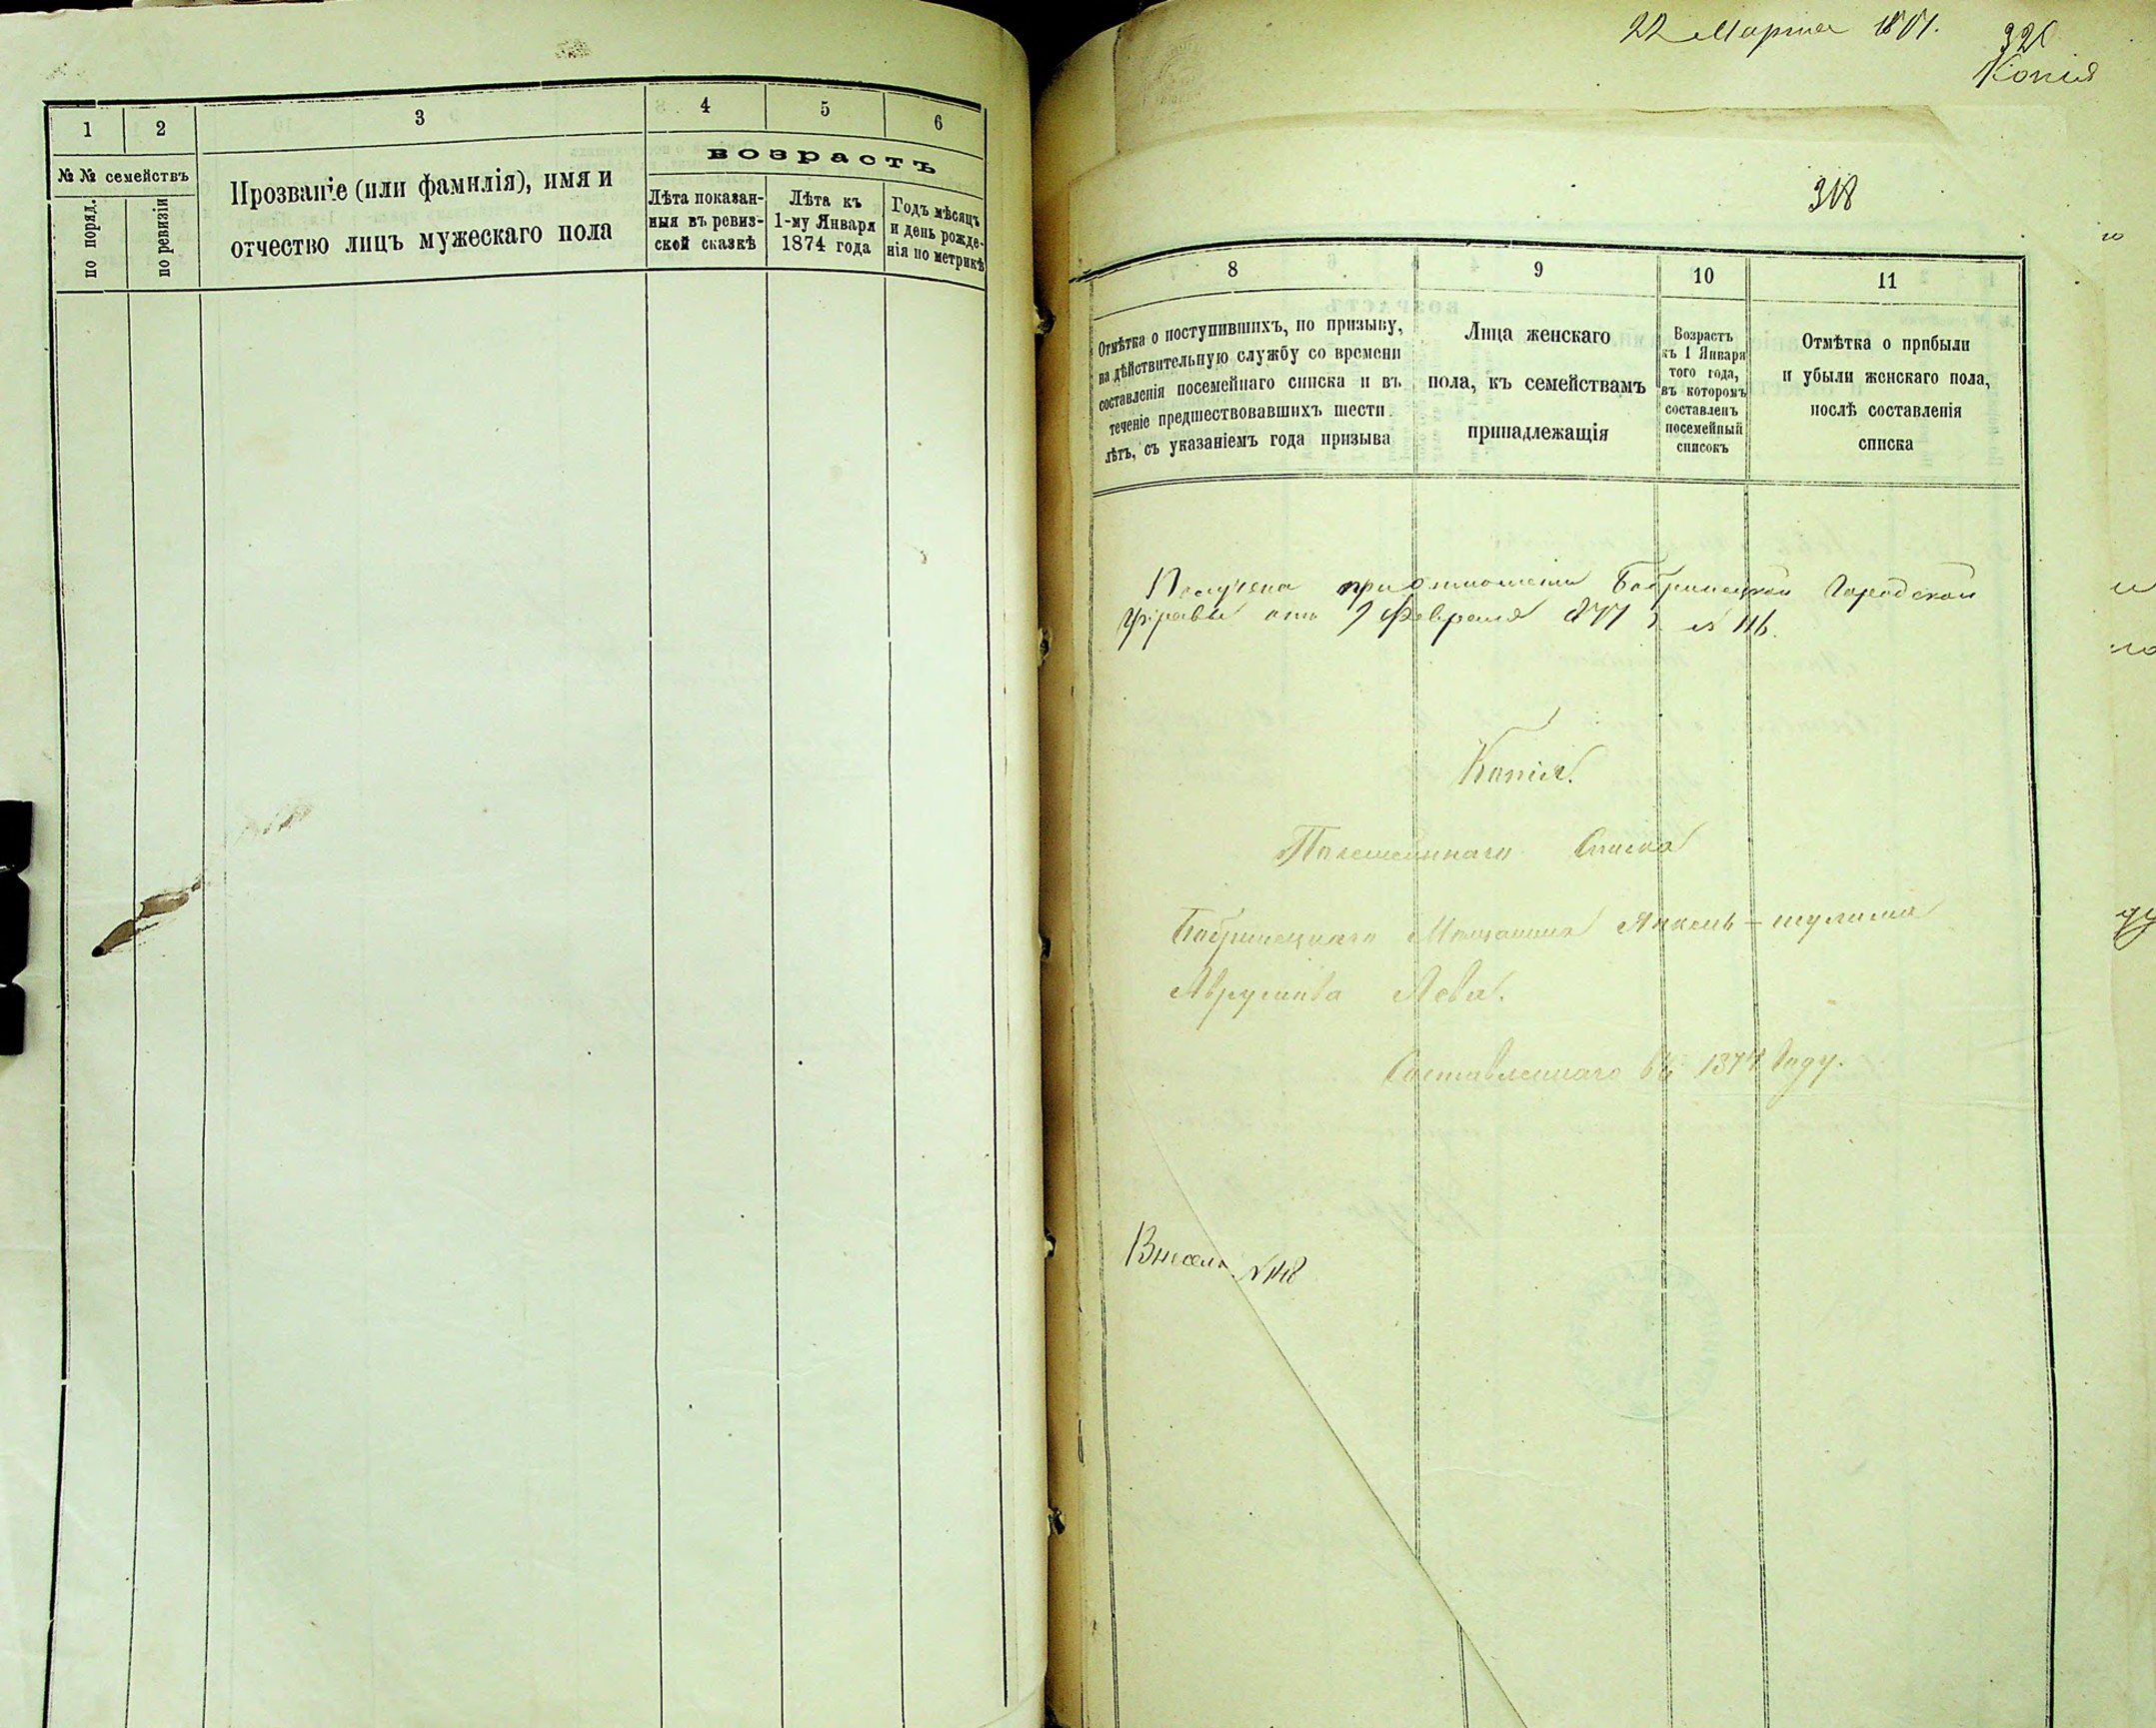 1
2
3
4
5
6
№ № семействъ
по поряд.
по ревизіи
Прозваніе (или фамилія), имя и
отчество лицъ мужескаго пола
возрастъ
Лѣта показан-
ныя въ ревиз-
ской сказкѣ
Лѣта къ
1-му Января
1874 года
Годъ мѣсяцъ
и день рожде-
нія по метрикѣ
22 Марта
Копія
318
8
9
10
11
Отмѣтка о поступившихъ, по призыву,
на дѣйствительную службу со времени
составленія посемейнаго списка и въ
теченіе предшествовавшихъ шести
лѣтъ, съ указаніемъ года призыва
Лица женскаго
пола, къ семействамъ
принадлежащія
Возрастъ
къ 1 Января
того года,
въ которомъ
составленъ
посемейный
списокъ
Отмѣтка о прибыли
и убыли женскаго пола,
послѣ составленія
списка
Получена при отношеніи Бобринецкой Городской
Управы отъ 9 Февраля
Копія.
Посемейнаго Списка
Бобринецкаго Мещанина Янкель-шулима
Аврумова Лева.
Составленнаго въ 1874 году.